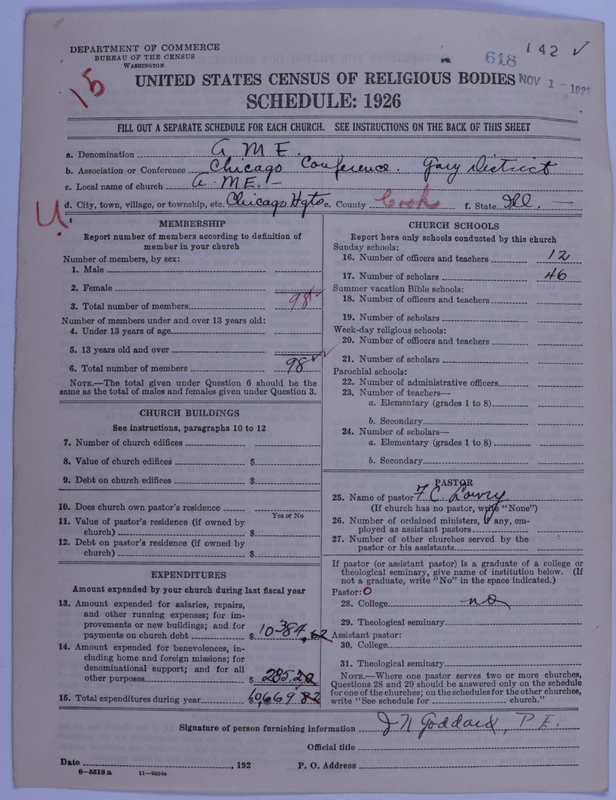 DEPARTMENT OF COMMERCE
BUREAU OF THE CENSUS
WASHINGTON
15
618
142 ✓
NOV 1 - 1927
UNITED STATES CENSUS OF RELIGIOUS BODIES
SCHEDULE: 1926
FILL OUT A SEPARATE SCHEDULE FOR EACH CHURCH. SEE INSTRUCTIONS ON THE BACK OF THIS SHEET
a. Denomination A M E.
b. Association or Conference Chicago Conference. Gary District
c. Local name of church A. M E. —
d. City, town, village, or township, etc. Chicago Hgts e. County Cook f. State Ill. —
U.
MEMBERSHIP
Report number of members according to definition of
member in your church
Number of members, by sex:
1. Male
2. Female
3. Total number of members 98
Number of members under and over 13 years old:
4. Under 13 years of age
5. 13 years old and over
6. Total number of members 98 ✓✓
NOTE.—The total given under Question 6 should be the
same as the total of males and females given under Question 3.
CHURCH BUILDINGS
See instructions, paragraphs 10 to 12
7. Number of church edifices
8. Value of church edifices $
9. Debt on church edifices $
10. Does church own pastor's residence?
Yes or No
11. Value of pastor's residence (if owned by
church) $
12. Debt on pastor's residence (if owned by
church) $
EXPENDITURES
Amount expended by your church during last fiscal year
13. Amount expended for salaries, repairs,
and other running expenses; for im-
provements or new buildings; and for
payments on church debt $ 10384.62
14. Amount expended for benevolences, in-
cluding home and foreign missions; for
denominational support; and for all
other purposes $ 285.20
15. Total expenditures during year $ 10,669.82
CHURCH SCHOOLS
Report here only schools conducted by this church
Sunday schools:
16. Number of officers and teachers 12
17. Number of scholars 46
Summer vacation Bible schools:
18. Number of officers and teachers
19. Number of scholars
Week-day religious schools:
20. Number of officers and teachers
21. Number of scholars
Parochial schools:
22. Number of administrative officers
23. Number of teachers—
a. Elementary (grades 1 to 8)
b. Secondary
24. Number of scholars—
a. Elementary (grades 1 to 8)
b. Secondary
PASTOR
25. Name of pastor F C. Lowry
(If church has no pastor, write "None")
26. Number of ordained ministers, if any, em-
ployed as assistant pastors
27. Number of other churches served by the
pastor or his assistants
If pastor (or assistant pastor) is a graduate of a college or
theological seminary, give name of institution below. (If
not a graduate, write "No" in the space indicated.)
Pastor: O
28. College no
29. Theological seminary
Assistant pastor:
30. College
31. Theological seminary
NOTE.—Where one pastor serves two or more churches,
Questions 28 and 29 should be answered only on the schedule
for one of the churches; on the schedules for the other churches,
write "See schedule for ---------- church."
Signature of person furnishing information J N Goddard, P. E.
Official title
Date , 192 P. O. Address
8—5518 a 11—9034a